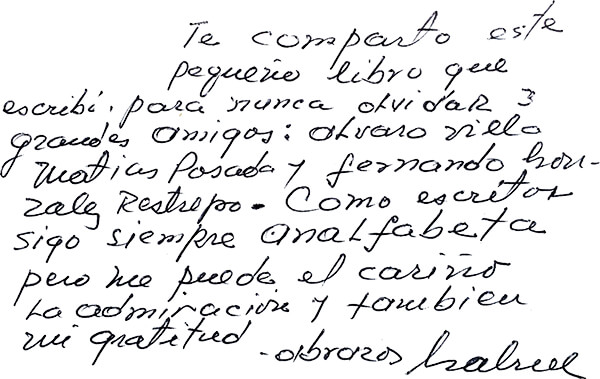 Te comparto este
pequeño libro que
escribí. para nunca olvidar 3
grandes amigos: alvaro villa
matias Posada y fernando Gon-
zalez Restrepo. Como escritor
sigo siempre analfabeta
pero me puede el cariño
la admiración y tambien
mi gratitud -abrazos